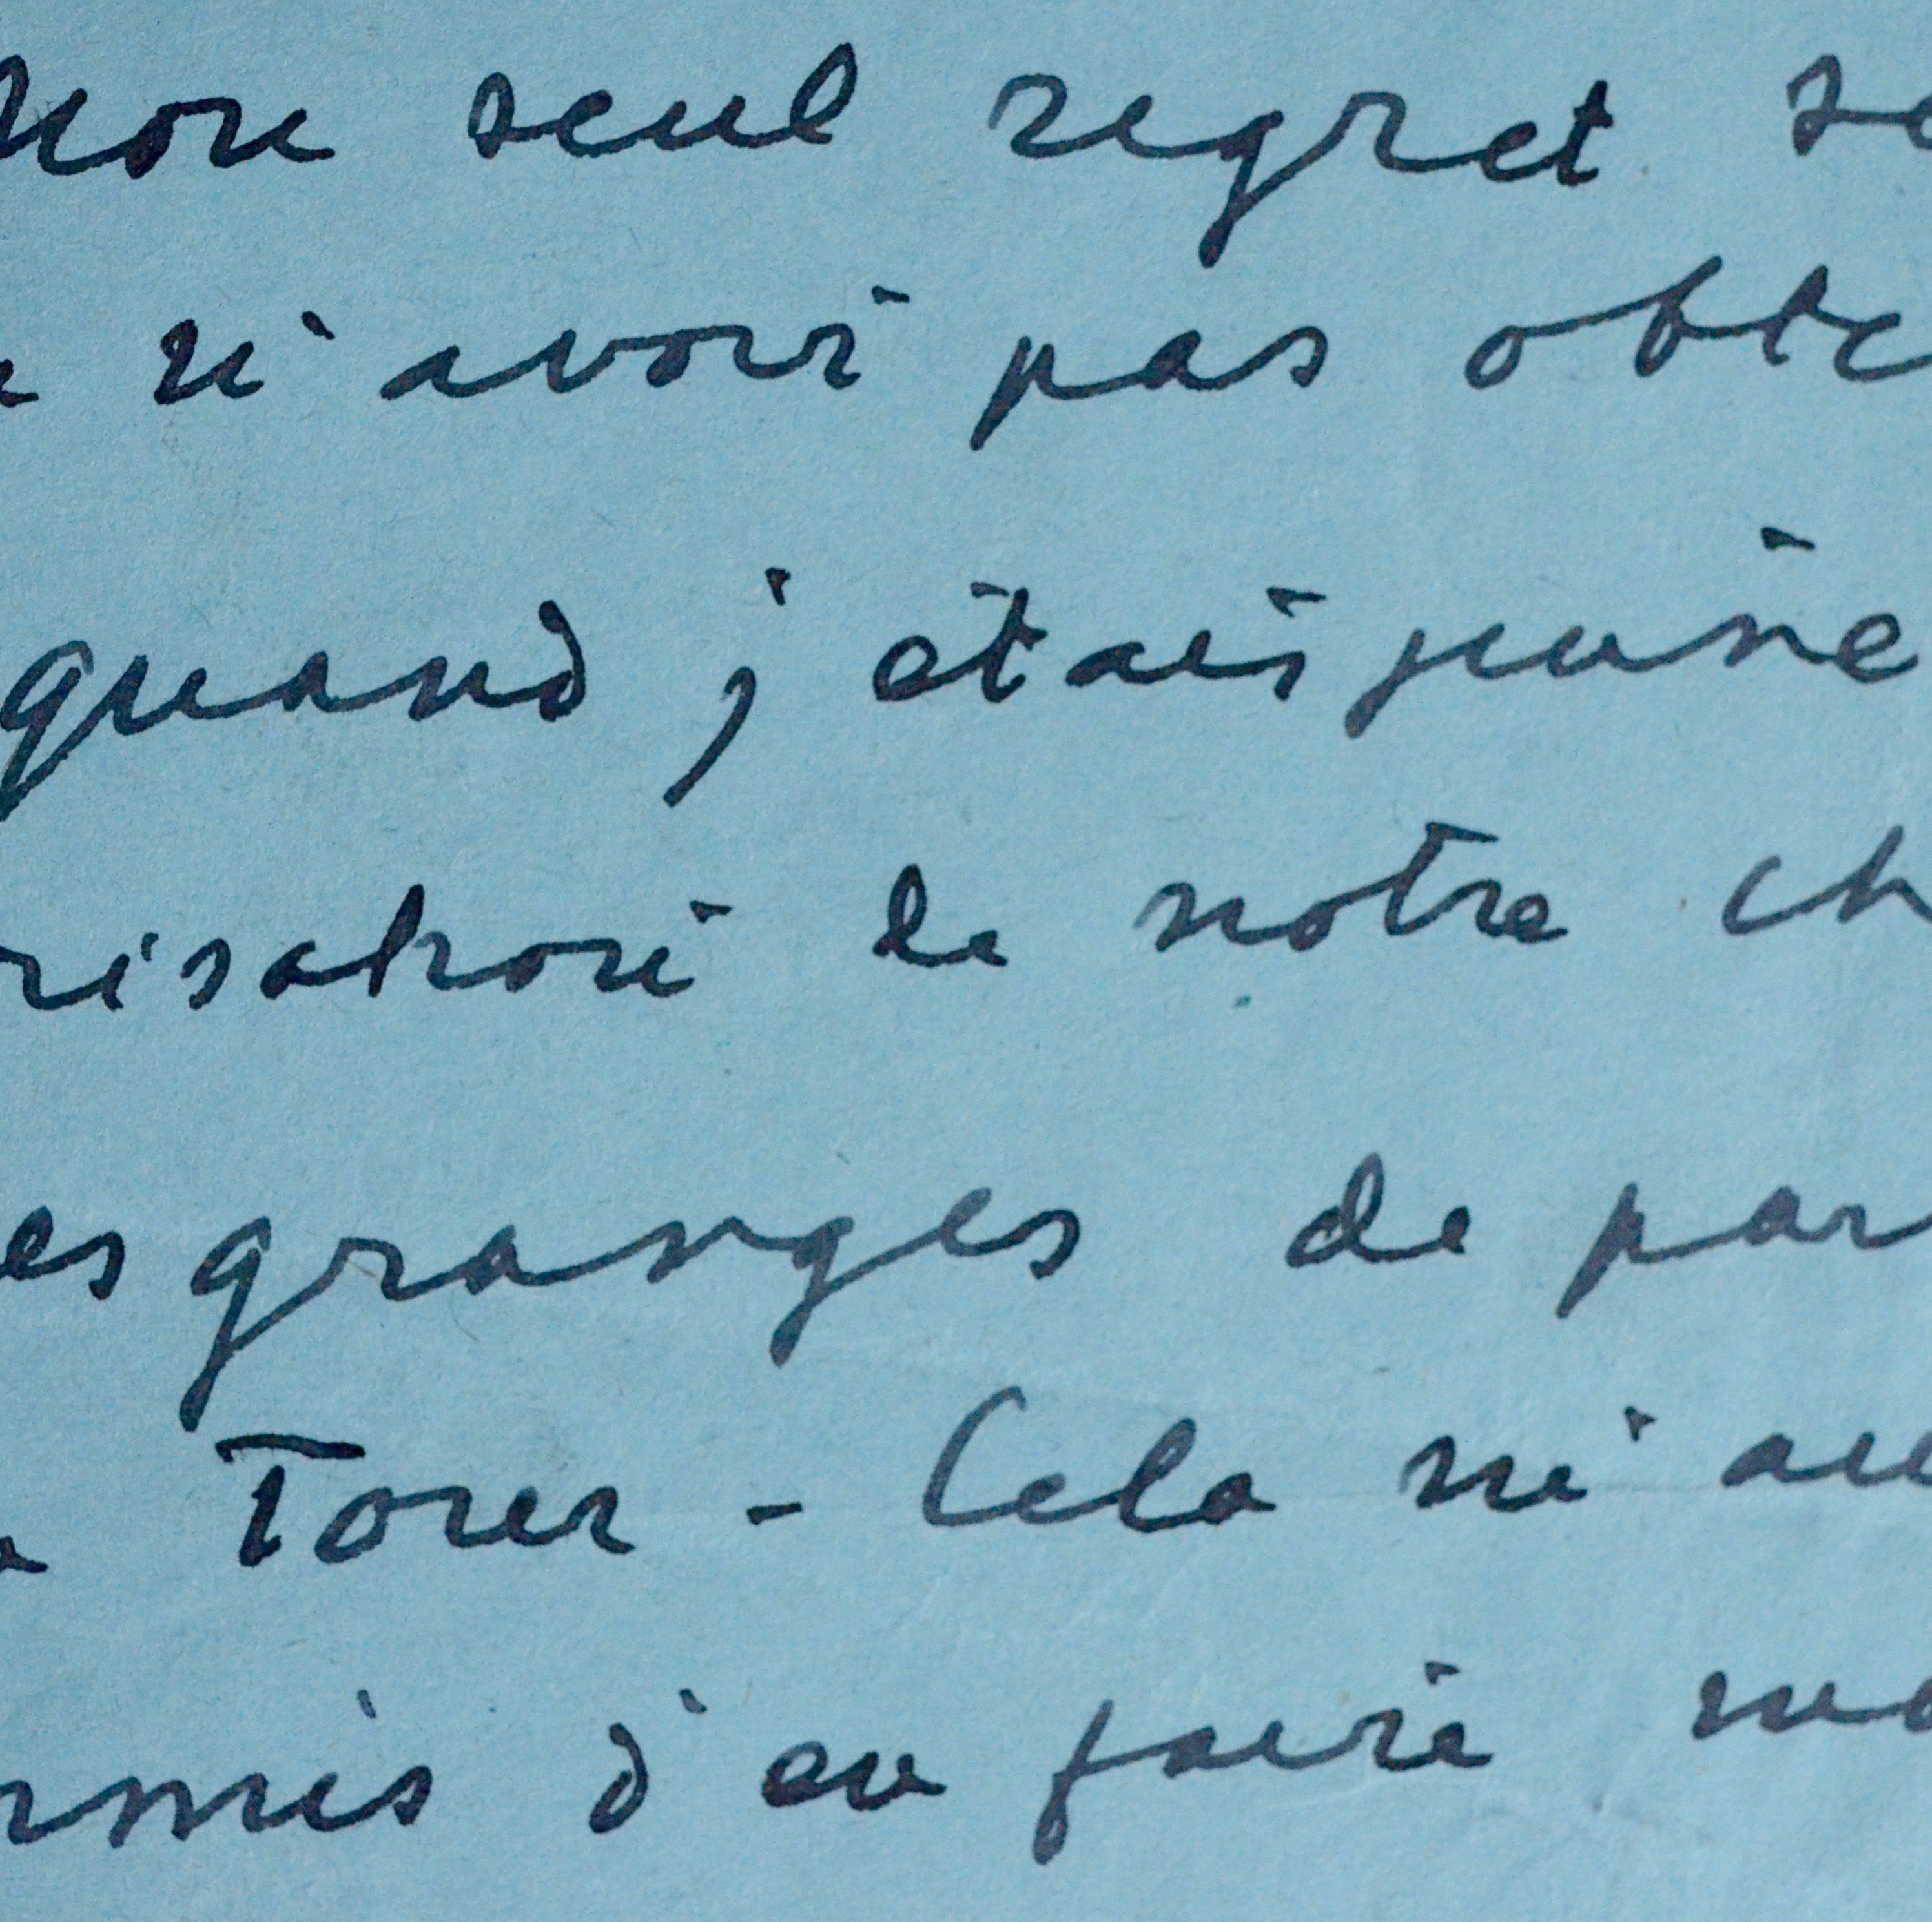 Mon seul regret se
n'avoir pas obte
quand j'étais jeune
risation de notre ch
es granges de par
Tour - Cela m'au
rmis d'en faire